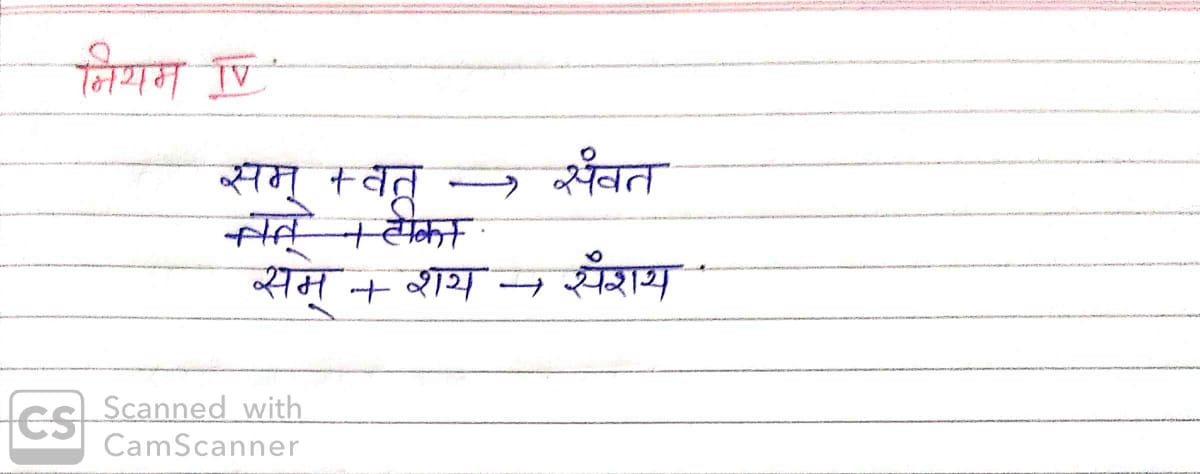 नियम IV
सम् + वत् → संवत
तत् + टीका
सम् + शय → संशय
CS Scanned with
CamScanner